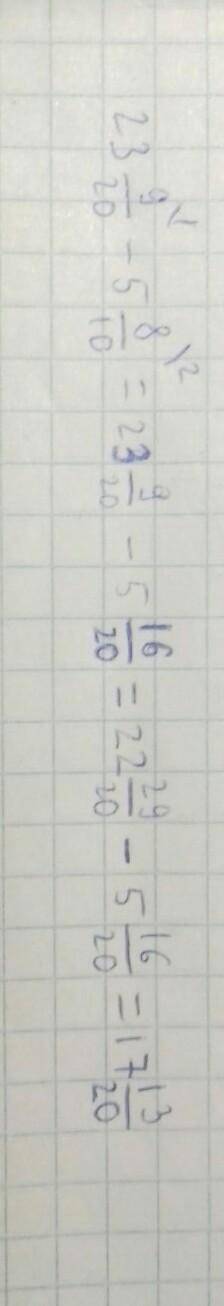 23 9/20 \1 - 5 8/10 \2 = 23 9/20 - 5 16/20 = 22 29/20 - 5 16/20 = 17 13/20